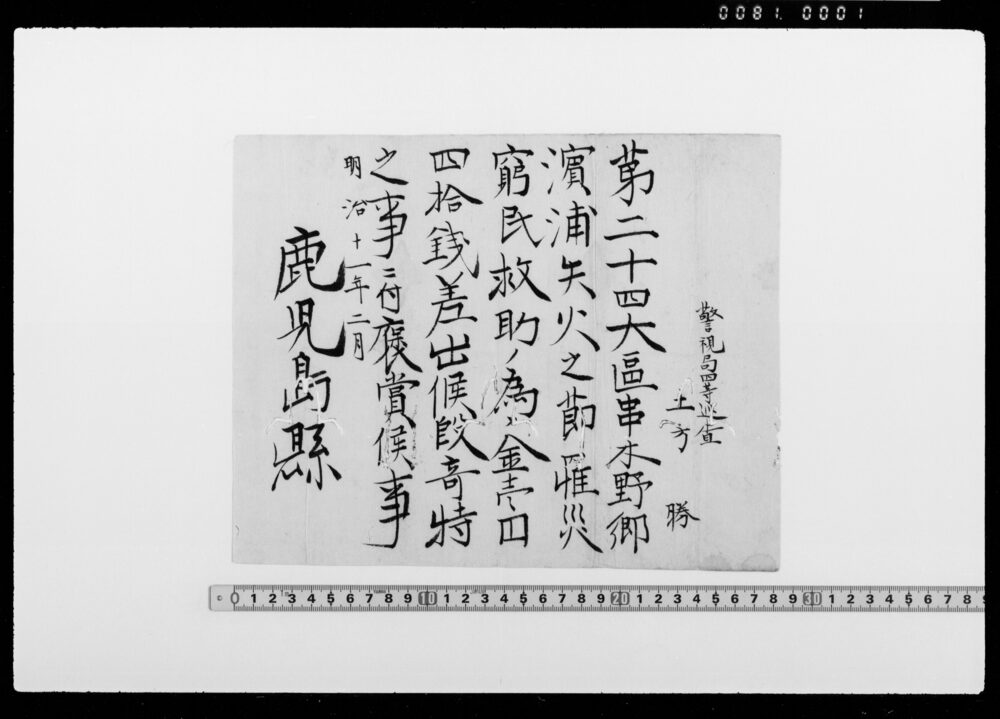 0081. 0001
警視局四等巡査
土方 勝
第二十四大區串木野郷
濵浦失火之節罹災
窮民救助ノ為メ金壱円
四拾銭差出候段奇特
之事ニ付褒賞候事
明治十一年二月
鹿児島縣
0 1 2 3 4 5 6 7 8 9 10 1 2 3 4 5 6 7 8 9 20 1 2 3 4 5 6 7 8 9 30 1 2 3 4 5 6 7 8 9